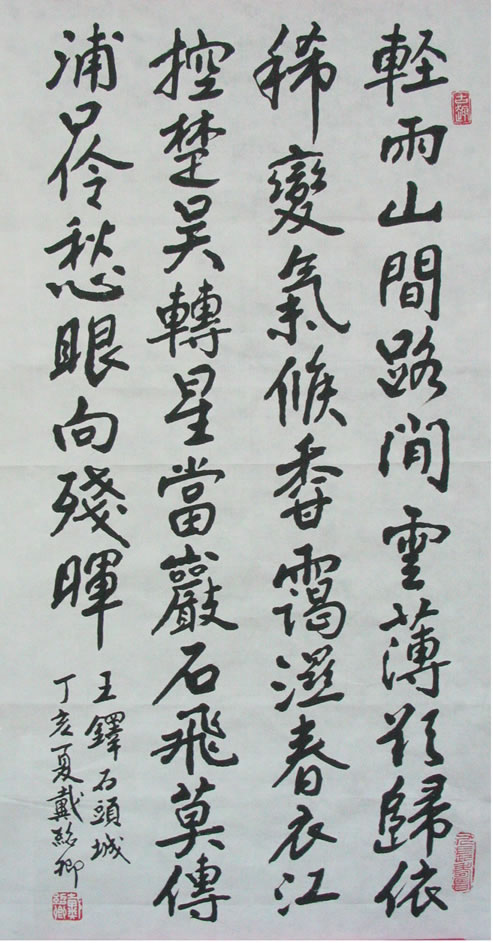 軽雨山間路閒雲薄欲歸依
稀變氣候香靄濕春衣江
控楚吳轉星當巖石飛莫傳
浦口伶愁眼向殘暉
王鐸石頭城
丁亥夏戴紹卿